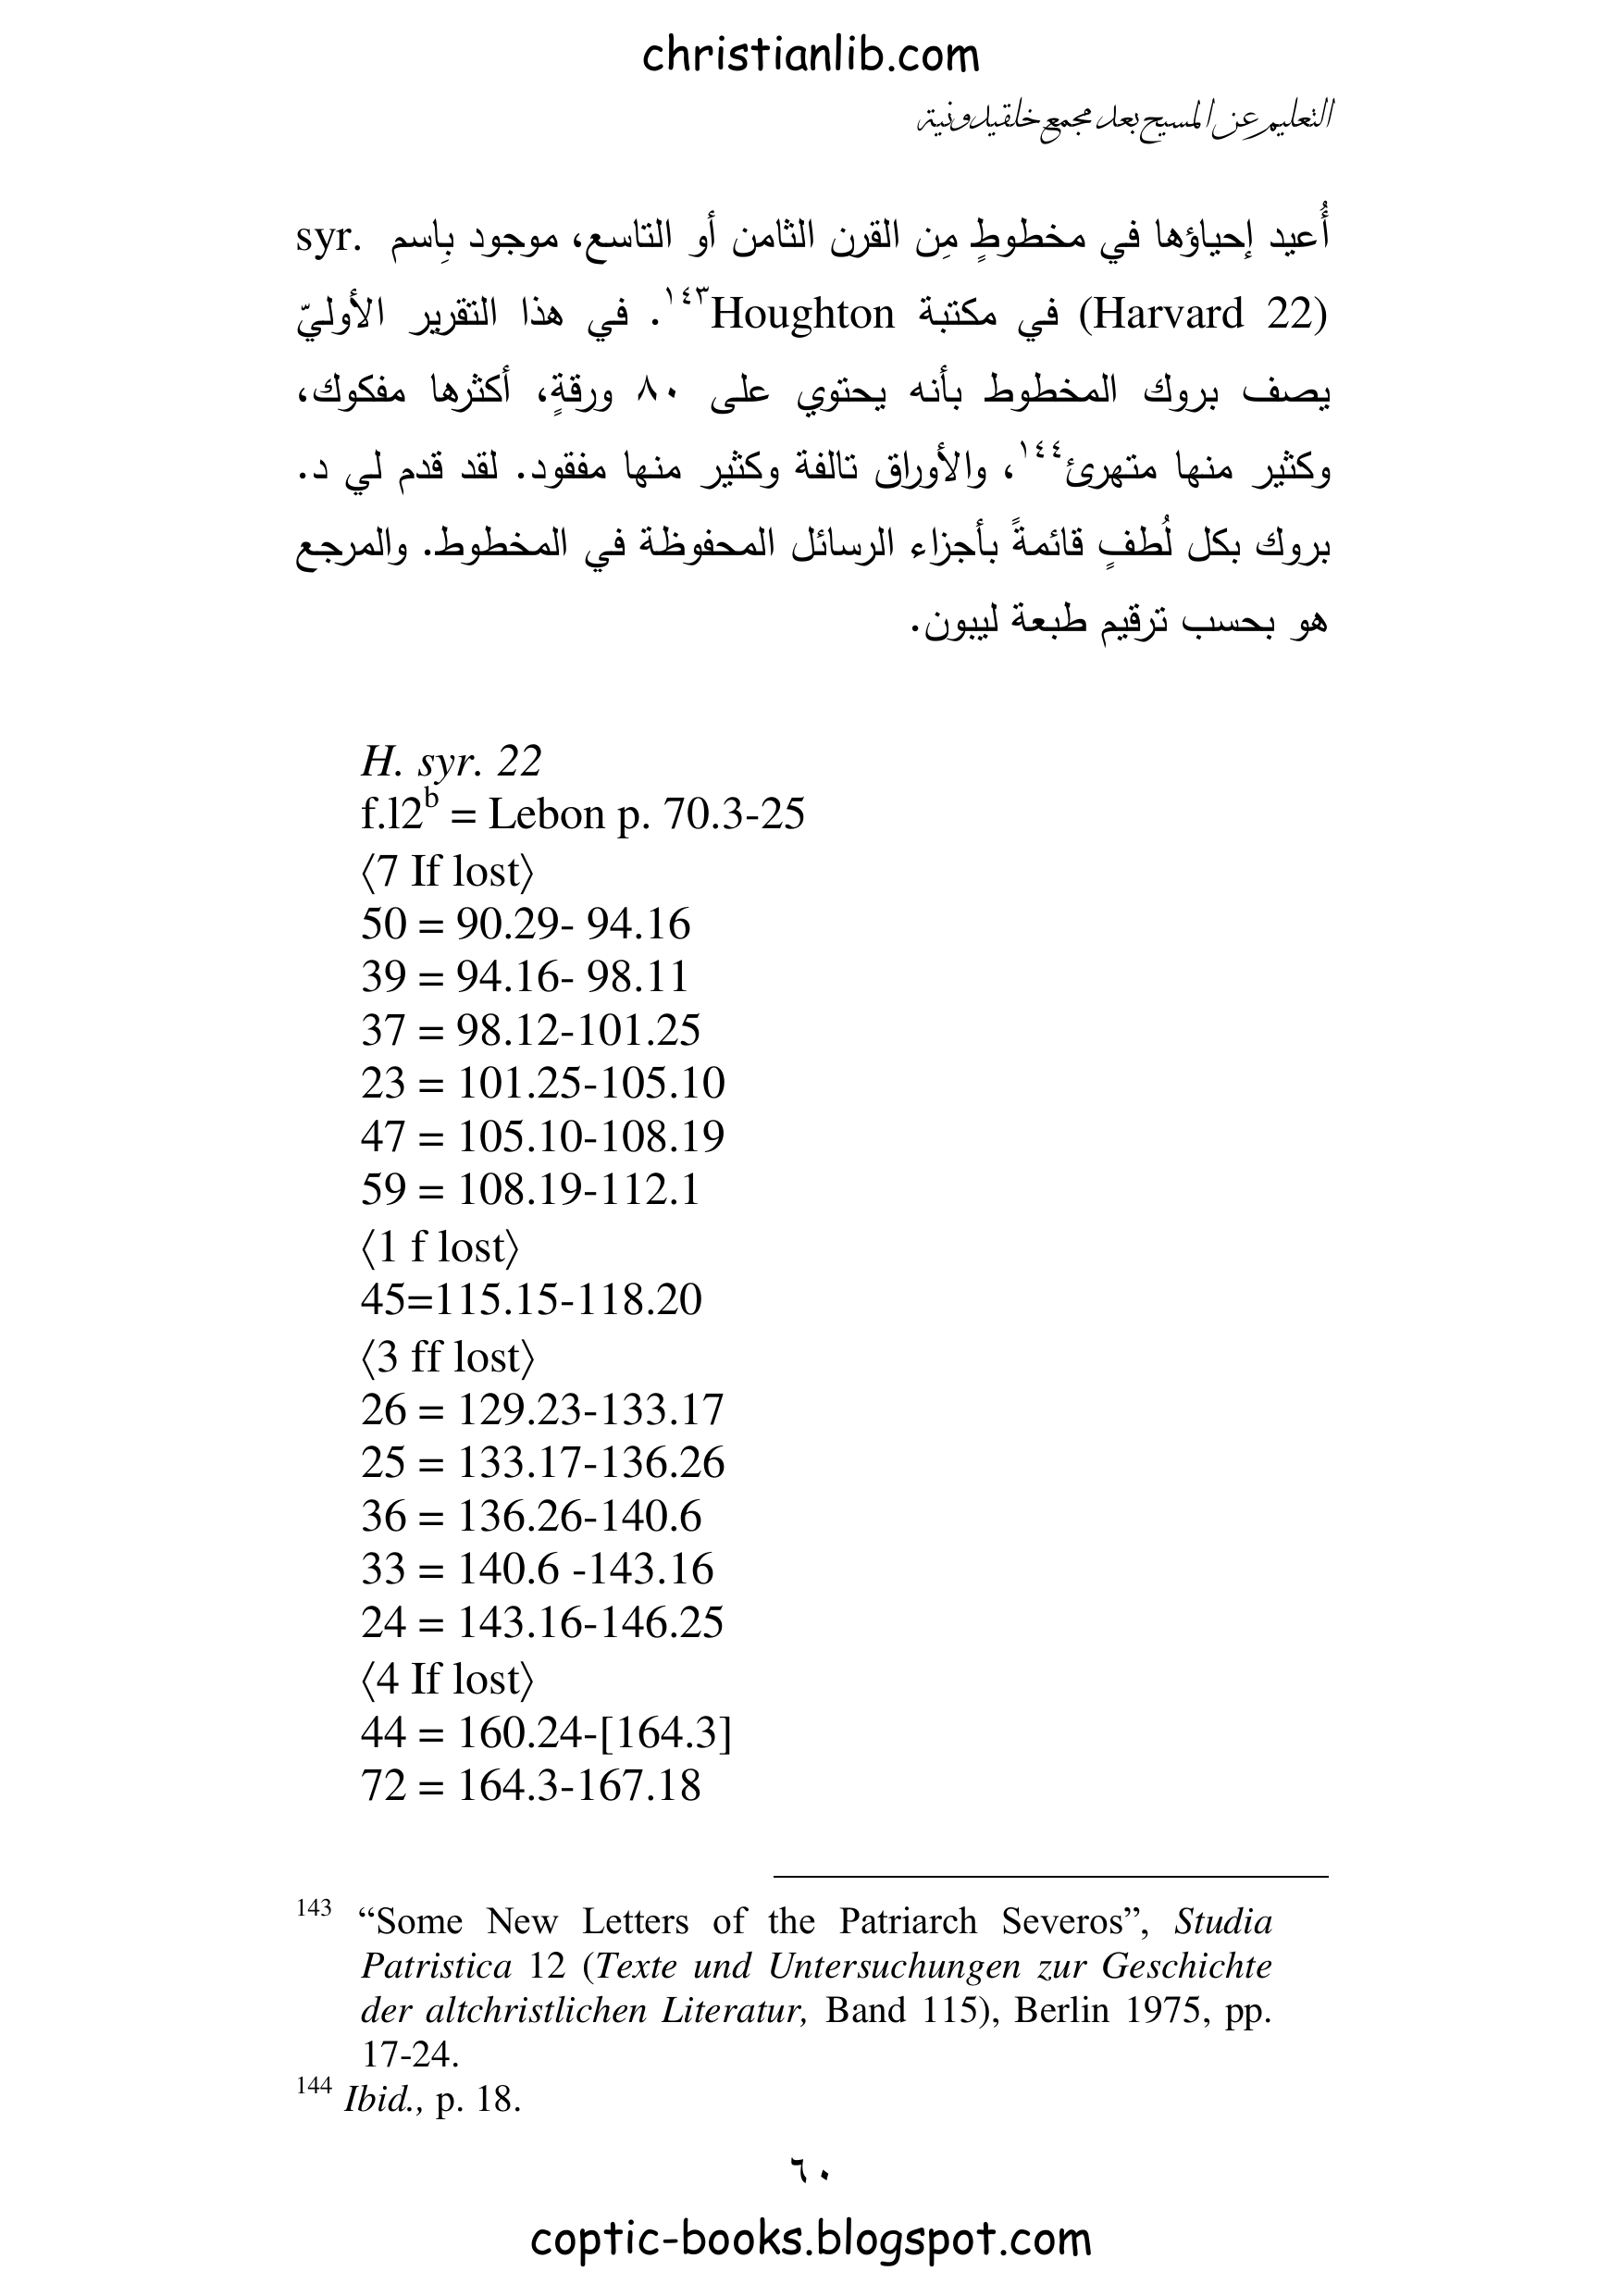 christianlib.com
التعليم عن المسيح بعد مجمع خلقيدونية
أُعيد إحياؤها في مخطوطٍ مِن القرن الثامن أو التاسع، موجود بِاسم syr.
(Harvard 22) في مكتبة Houghton١٤٣. في هذا التقرير الأوليّ
يصف بروك المخطوط بأنه يحتوي على ٨٠ ورقةٍ، أكثرها مفكوك،
وكثير منها متهرئ١٤٤، والأوراق تالفة وكثير منها مفقود. لقد قدم لي د.
بروك بكل لُطفٍ قائمةً بأجزاء الرسائل المحفوظة في المخطوط. والمرجع
هو بحسب ترقيم طبعة ليبون.
H. syr. 22
f.l2b = Lebon p. 70.3-25
⟨7 If lost⟩
50 = 90.29- 94.16
39 = 94.16- 98.11
37 = 98.12-101.25
23 = 101.25-105.10
47 = 105.10-108.19
59 = 108.19-112.1
⟨1 f lost⟩
45=115.15-118.20
⟨3 ff lost⟩
26 = 129.23-133.17
25 = 133.17-136.26
36 = 136.26-140.6
33 = 140.6 -143.16
24 = 143.16-146.25
⟨4 If lost⟩
44 = 160.24-[164.3]
72 = 164.3-167.18
143 “Some New Letters of the Patriarch Severos”, Studia
Patristica 12 (Texte und Untersuchungen zur Geschichte
der altchristlichen Literatur, Band 115), Berlin 1975, pp.
17-24.
144 Ibid., p. 18.
٦٠
coptic-books.blogspot.com